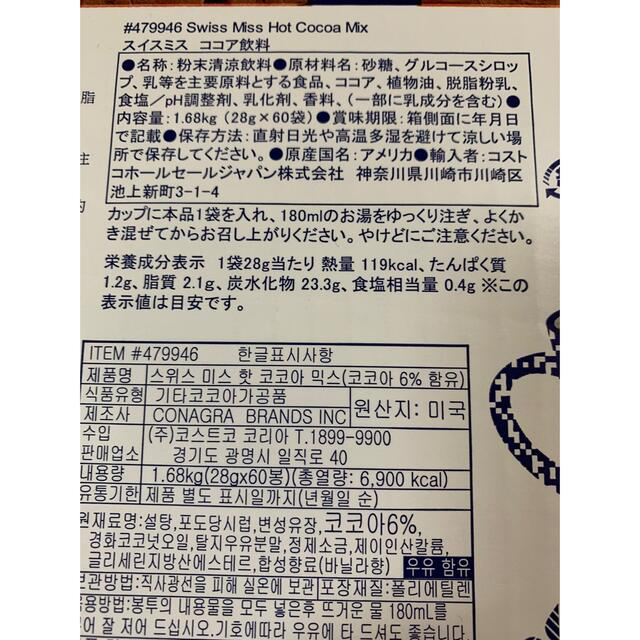 #479946 Swiss Miss Hot Cocoa Mix
スイスミス ココア飲料
●名称: 粉末清涼飲料●原材料名: 砂糖、グルコースシロッ
プ、乳等を主要原料とする食品、ココア、植物油、脱脂粉乳、
食塩／pH調整剤、乳化剤、香料、（一部に乳成分を含む）●
内容量: 1.68kg（28g×60袋）●賞味期限: 箱側面に年月日
で記載●保存方法: 直射日光や高温多湿を避けて涼しい場
所で保存してください。●原産国名: アメリカ●輸入者: コスト
コホールセールジャパン株式会社 神奈川県川崎市川崎区
池上新町3-1-4
カップに本品1袋を入れ、180mlのお湯をゆっくり注ぎ、よくか
き混ぜてからお召し上がりください。やけどにご注意ください。
栄養成分表示 1袋28g当たり 熱量 119kcal、たんぱく質
1.2g、脂質 2.1g、炭水化物 23.3g、食塩相当量 0.4g ※この
表示値は目安です。
脂
主
的
ITEM #479946 한글표시사항
제품명 스위스 미스 핫 코코아 믹스(코코아 6% 함유)
식품유형 기타코코아가공품
제조사 CONAGRA BRANDS INC 원산지: 미국
수입 (주)코스트코 코리아 T.1899-9900
판매업소 경기도 광명시 일직로 40
내용량 1.68kg(28gx60봉)(총열량: 6,900 kcal)
유통기한 제품 별도 표시일까지(년월일 순)
원재료명:설탕,포도당시럽,변성유장,코코아6%,
경화코코넛오일,탈지우유분말,정제소금,제이인산칼륨,
글리세린지방산에스테르,합성향료(바닐라향) 우유 함유
보관방법:직사광선을 피해 실온에 보관 포장재질:폴리에틸렌
음용방법:봉투의 내용물을 모두 넣은후 뜨거운 물 180mL를
어 잘 저어 드십시오.기호에따라 우유에 타 드셔도 좋습